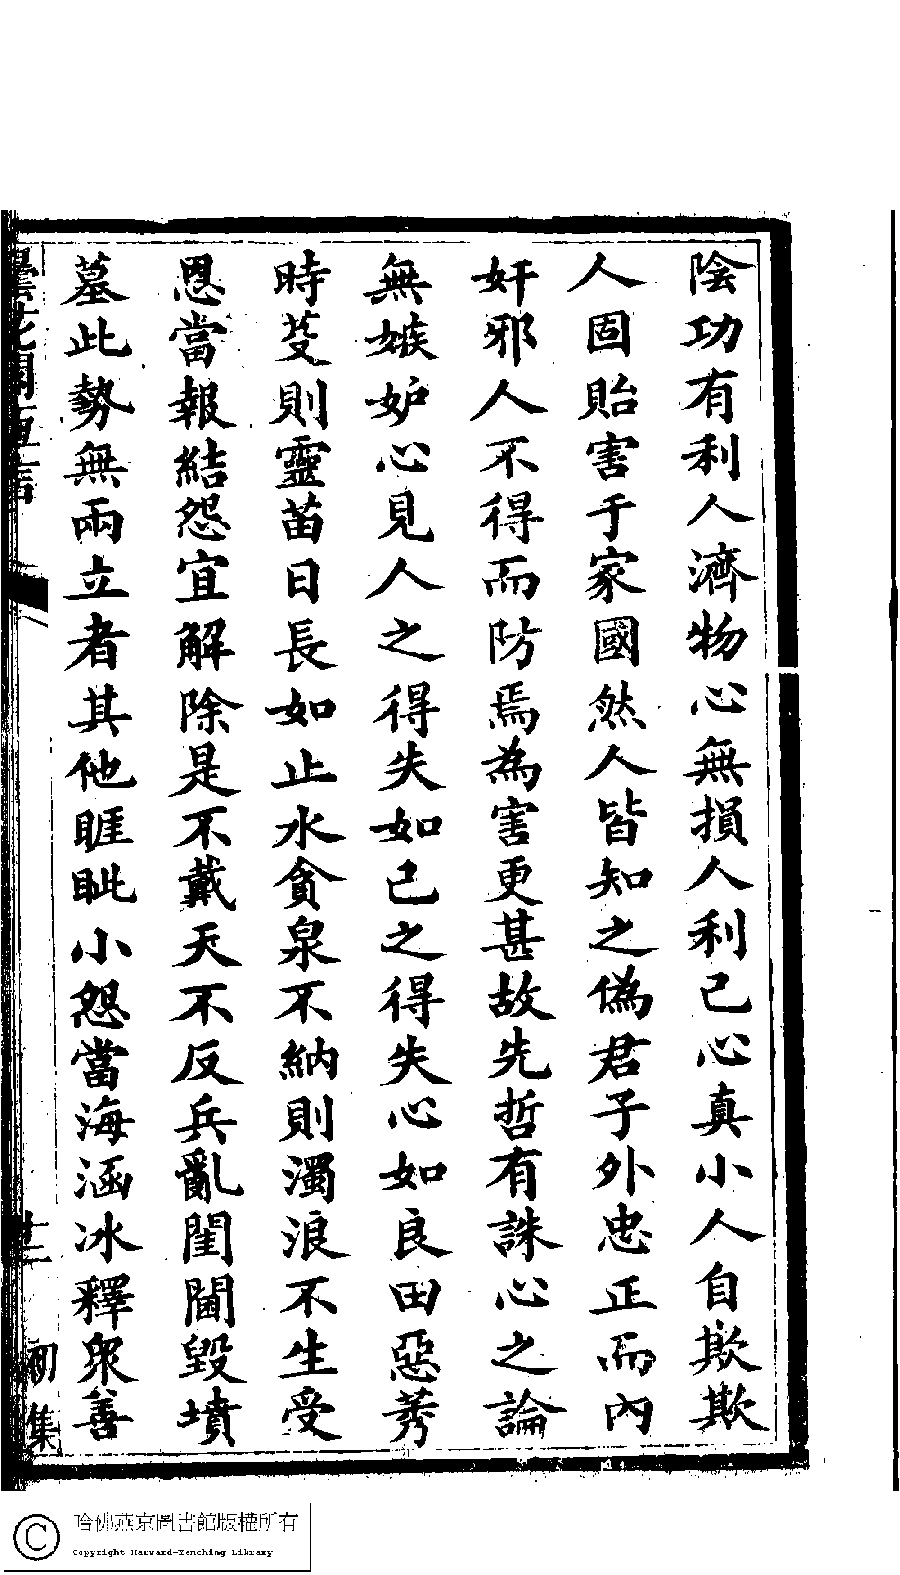 陰功有利人濟物心無損人利己心真小人自欺欺
人固貽害于家國然人皆知之偽君子外忠正而內
奸邪人不得而防焉為害更甚故先哲有誅心之論
無嫉妒心見人之得失如己之得失心如良田惡莠
時芟則靈苗日長如止水貪泉不納則濁浪不生受
恩當報結怨宜解除是不戴天不反兵亂閨閫毀墳
墓此勢無兩立者其他睚眦小怨當海涵冰釋眾善
初集
哈佛燕京圖書館版權所有
Copyright Harvard-Yenching Library